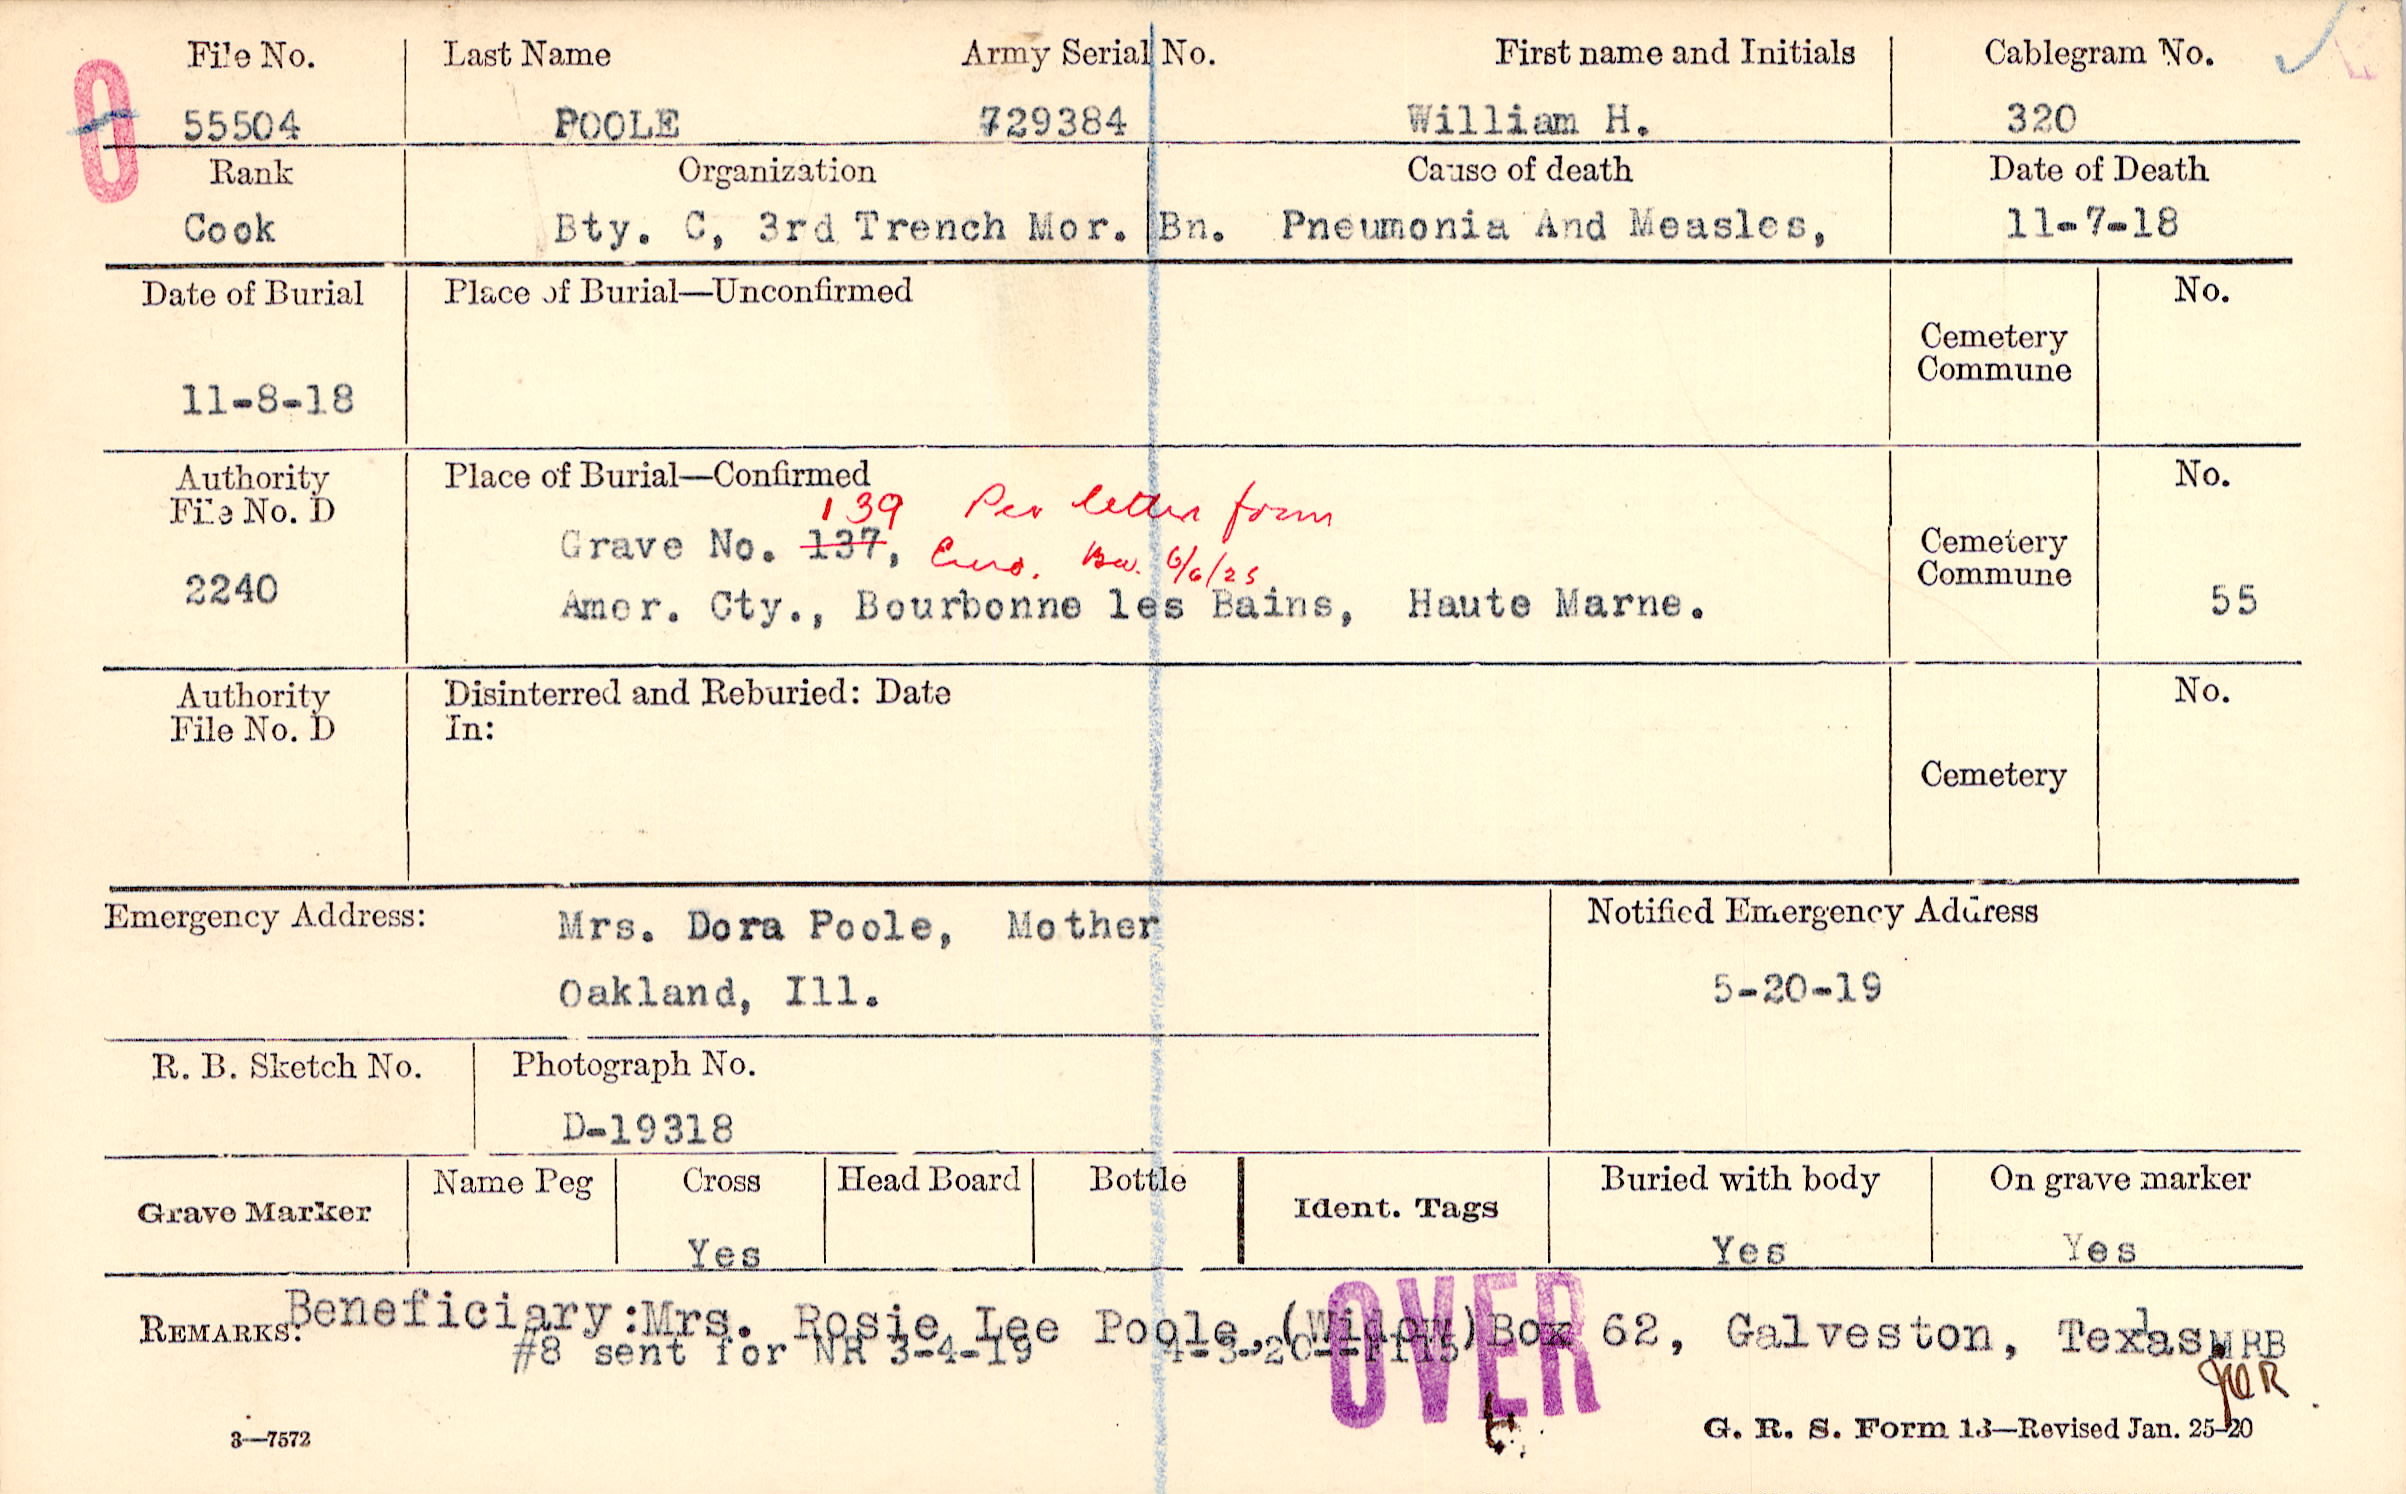 File No. Last Name Army Serial No. First name and Initials Cablegram No.
0
55504 POOLE 729384 William H. 320
Rank Organization Cause of death Date of Death
Cook Bty. C, 3rd Trench Mor. Bn. Pneumonia And Measles, 11-7-18
Date of Burial Place of Burial—Unconfirmed No.
Cemetery
Commune
11-8-18
Authority Place of Burial—Confirmed No.
File No. D
139 Per letter form
Grave No. 137, Euro. 6/6/25
Cemetery
Commune
2240
Amer. Cty., Bourbonne les Bains, Haute Marne. 55
Authority Disinterred and Reburied: Date No.
File No. D In:
Cemetery
Emergency Address: Mrs. Dora Poole, Mother Notified Emergency Address
Oakland, Ill. 5-20-19
R. B. Sketch No. Photograph No.
D-19318
Name Peg Cross Head Board Bottle Buried with body On grave marker
Grave Marker Ident. Tags
Yes Yes Yes
REMARKS: Beneficiary:Mrs. Rosie Lee Poole,(Widow)Box 62, Galveston, Texas
#8 sent for NR 3-4-19 MRB
OVER
3—7572 G. R. S. Form 13—Revised Jan. 25-20